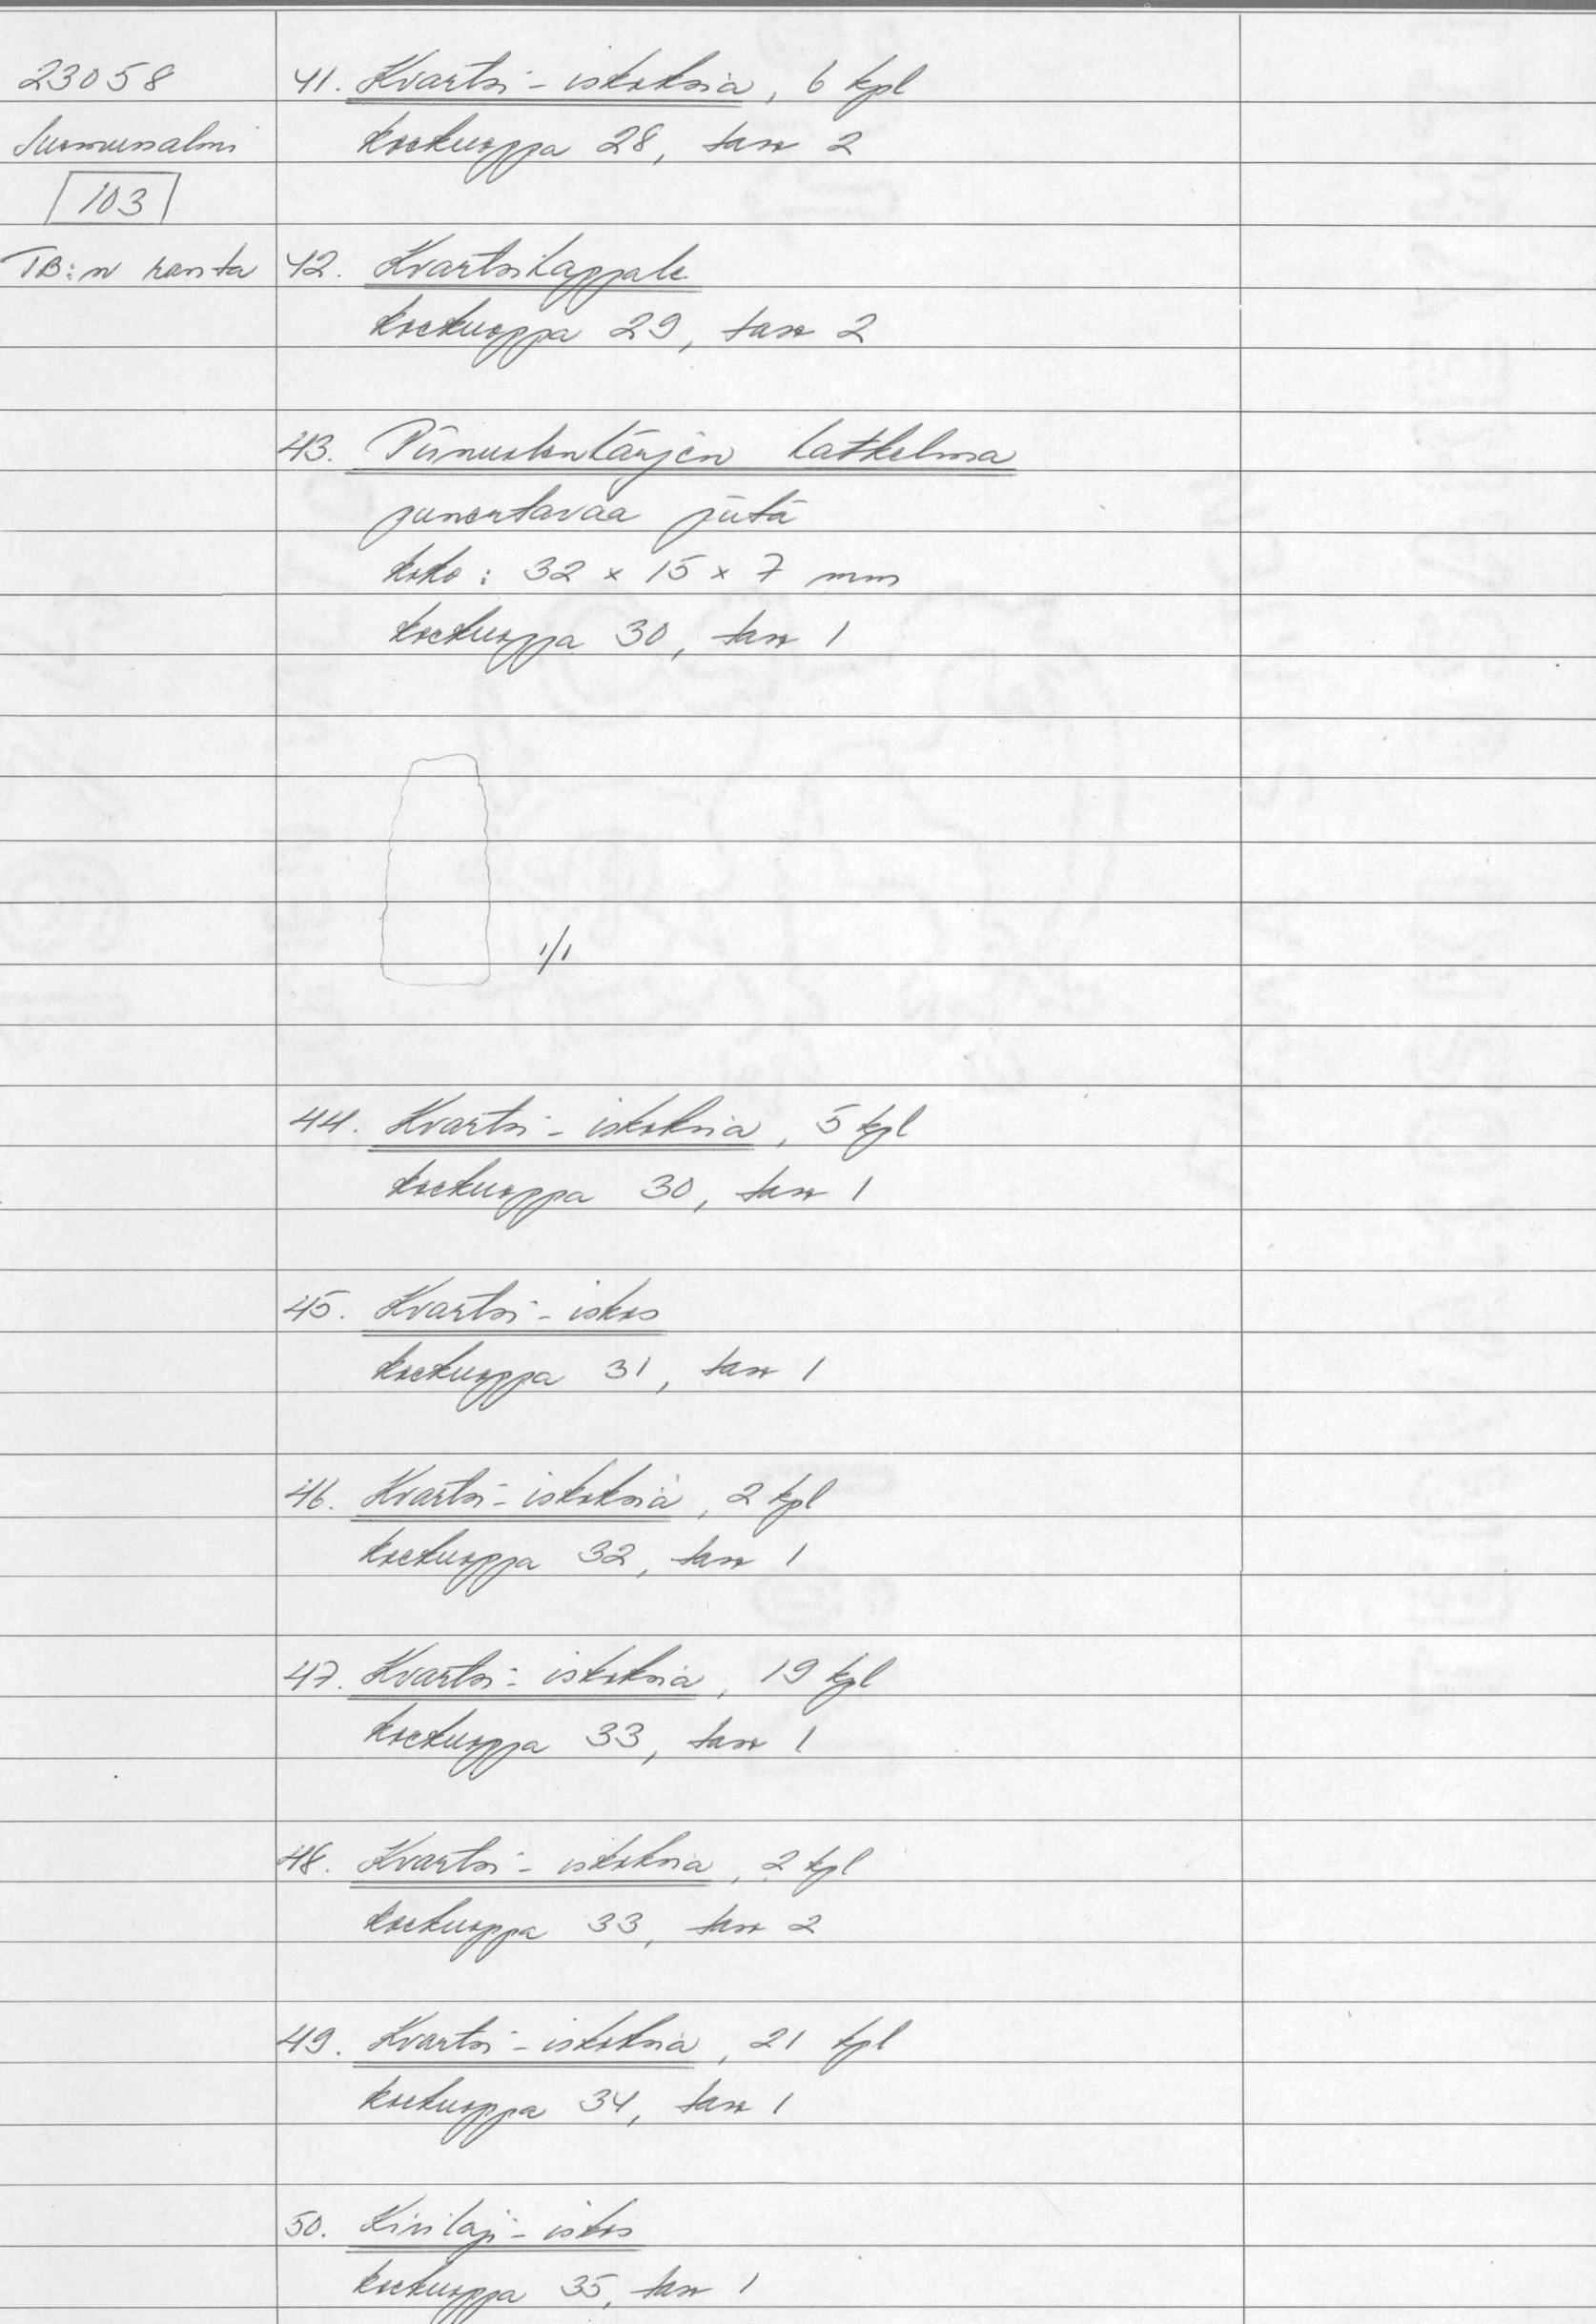 23058
Suomussalmi
103
TB:n ranta
41. Kvartsi-iskoksia, 6 kpl
koekuoppa 28, taso 2
42. Kvartsikappale
koekuoppa 29, taso 2
43. Piinuolenkärjen katkelma
punertavaa piitä
koko: 32 x 15 x 7 mm
koekuoppa 30, taso 1
1/1
44. Kvartsi-iskoksia, 5 kpl
koekuoppa 30, taso 1
45. Kvartsi-iskos
koekuoppa 31, taso 1
46. Kvartsi-iskoksia, 2 kpl
koekuoppa 32, taso 1
47. Kvartsi-iskoksia, 19 kpl
koekuoppa 33, taso 1
48. Kvartsi-iskoksia, 2 kpl
koekuoppa 33, taso 2
49. Kvartsi-iskoksia, 21 kpl
koekuoppa 34, taso 1
50. Kivilaji-iskos
koekuoppa 35, taso 1